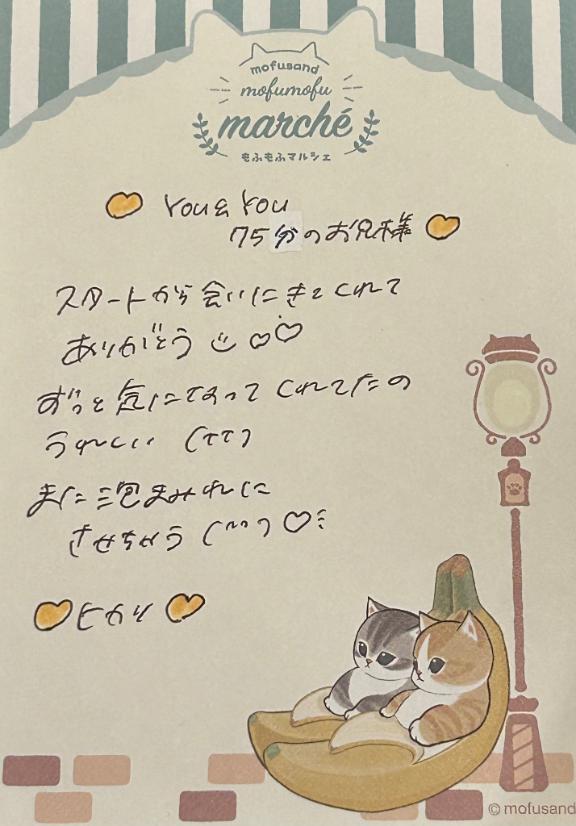 mofusand
mofumofu
marché
もふもふマルシェ
You & You
75分のお兄様
スタートから会いにきてくれて
ありがとう
ずっと気になってくれてたの
うれしい (TT)
また泡まみれに
させちゃう (^^)
ヒカリ
© mofusand